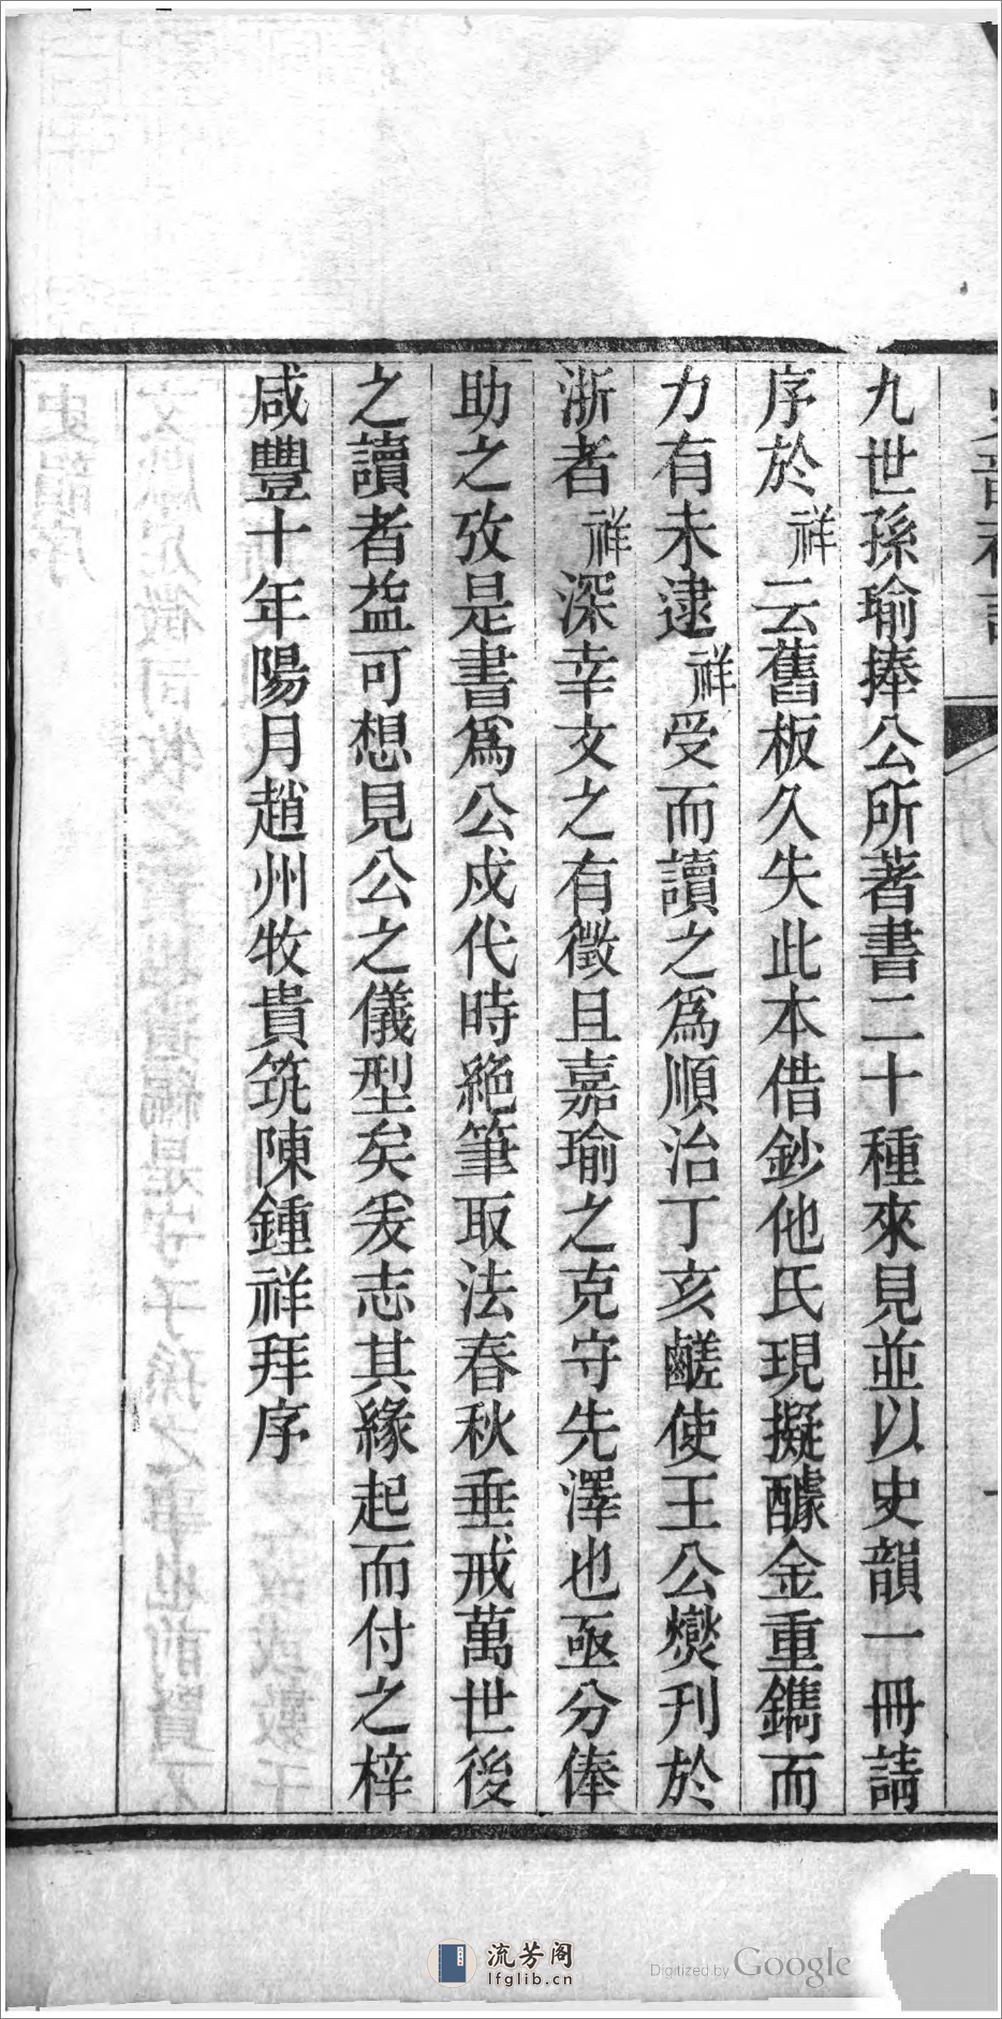 九世孫瑜捧公所著書二十種來見並以史韻一冊請
序於祥云舊板久失此本借鈔他氏現擬醵金重鐫而
力有未逮祥受而讀之爲順治丁亥鹺使王公爕刋於
浙者祥深幸文之有徵且嘉瑜之克守先澤也亟分俸
助之攷是書爲公戍代時絶筆取法春秋垂戒萬世後
之讀者益可想見公之儀型矣爰志其緣起而付之梓
咸豐十年陽月趙州牧貴筑陳鍾祥拜序
流芳阁
lfglib.cn
Digitized by Google